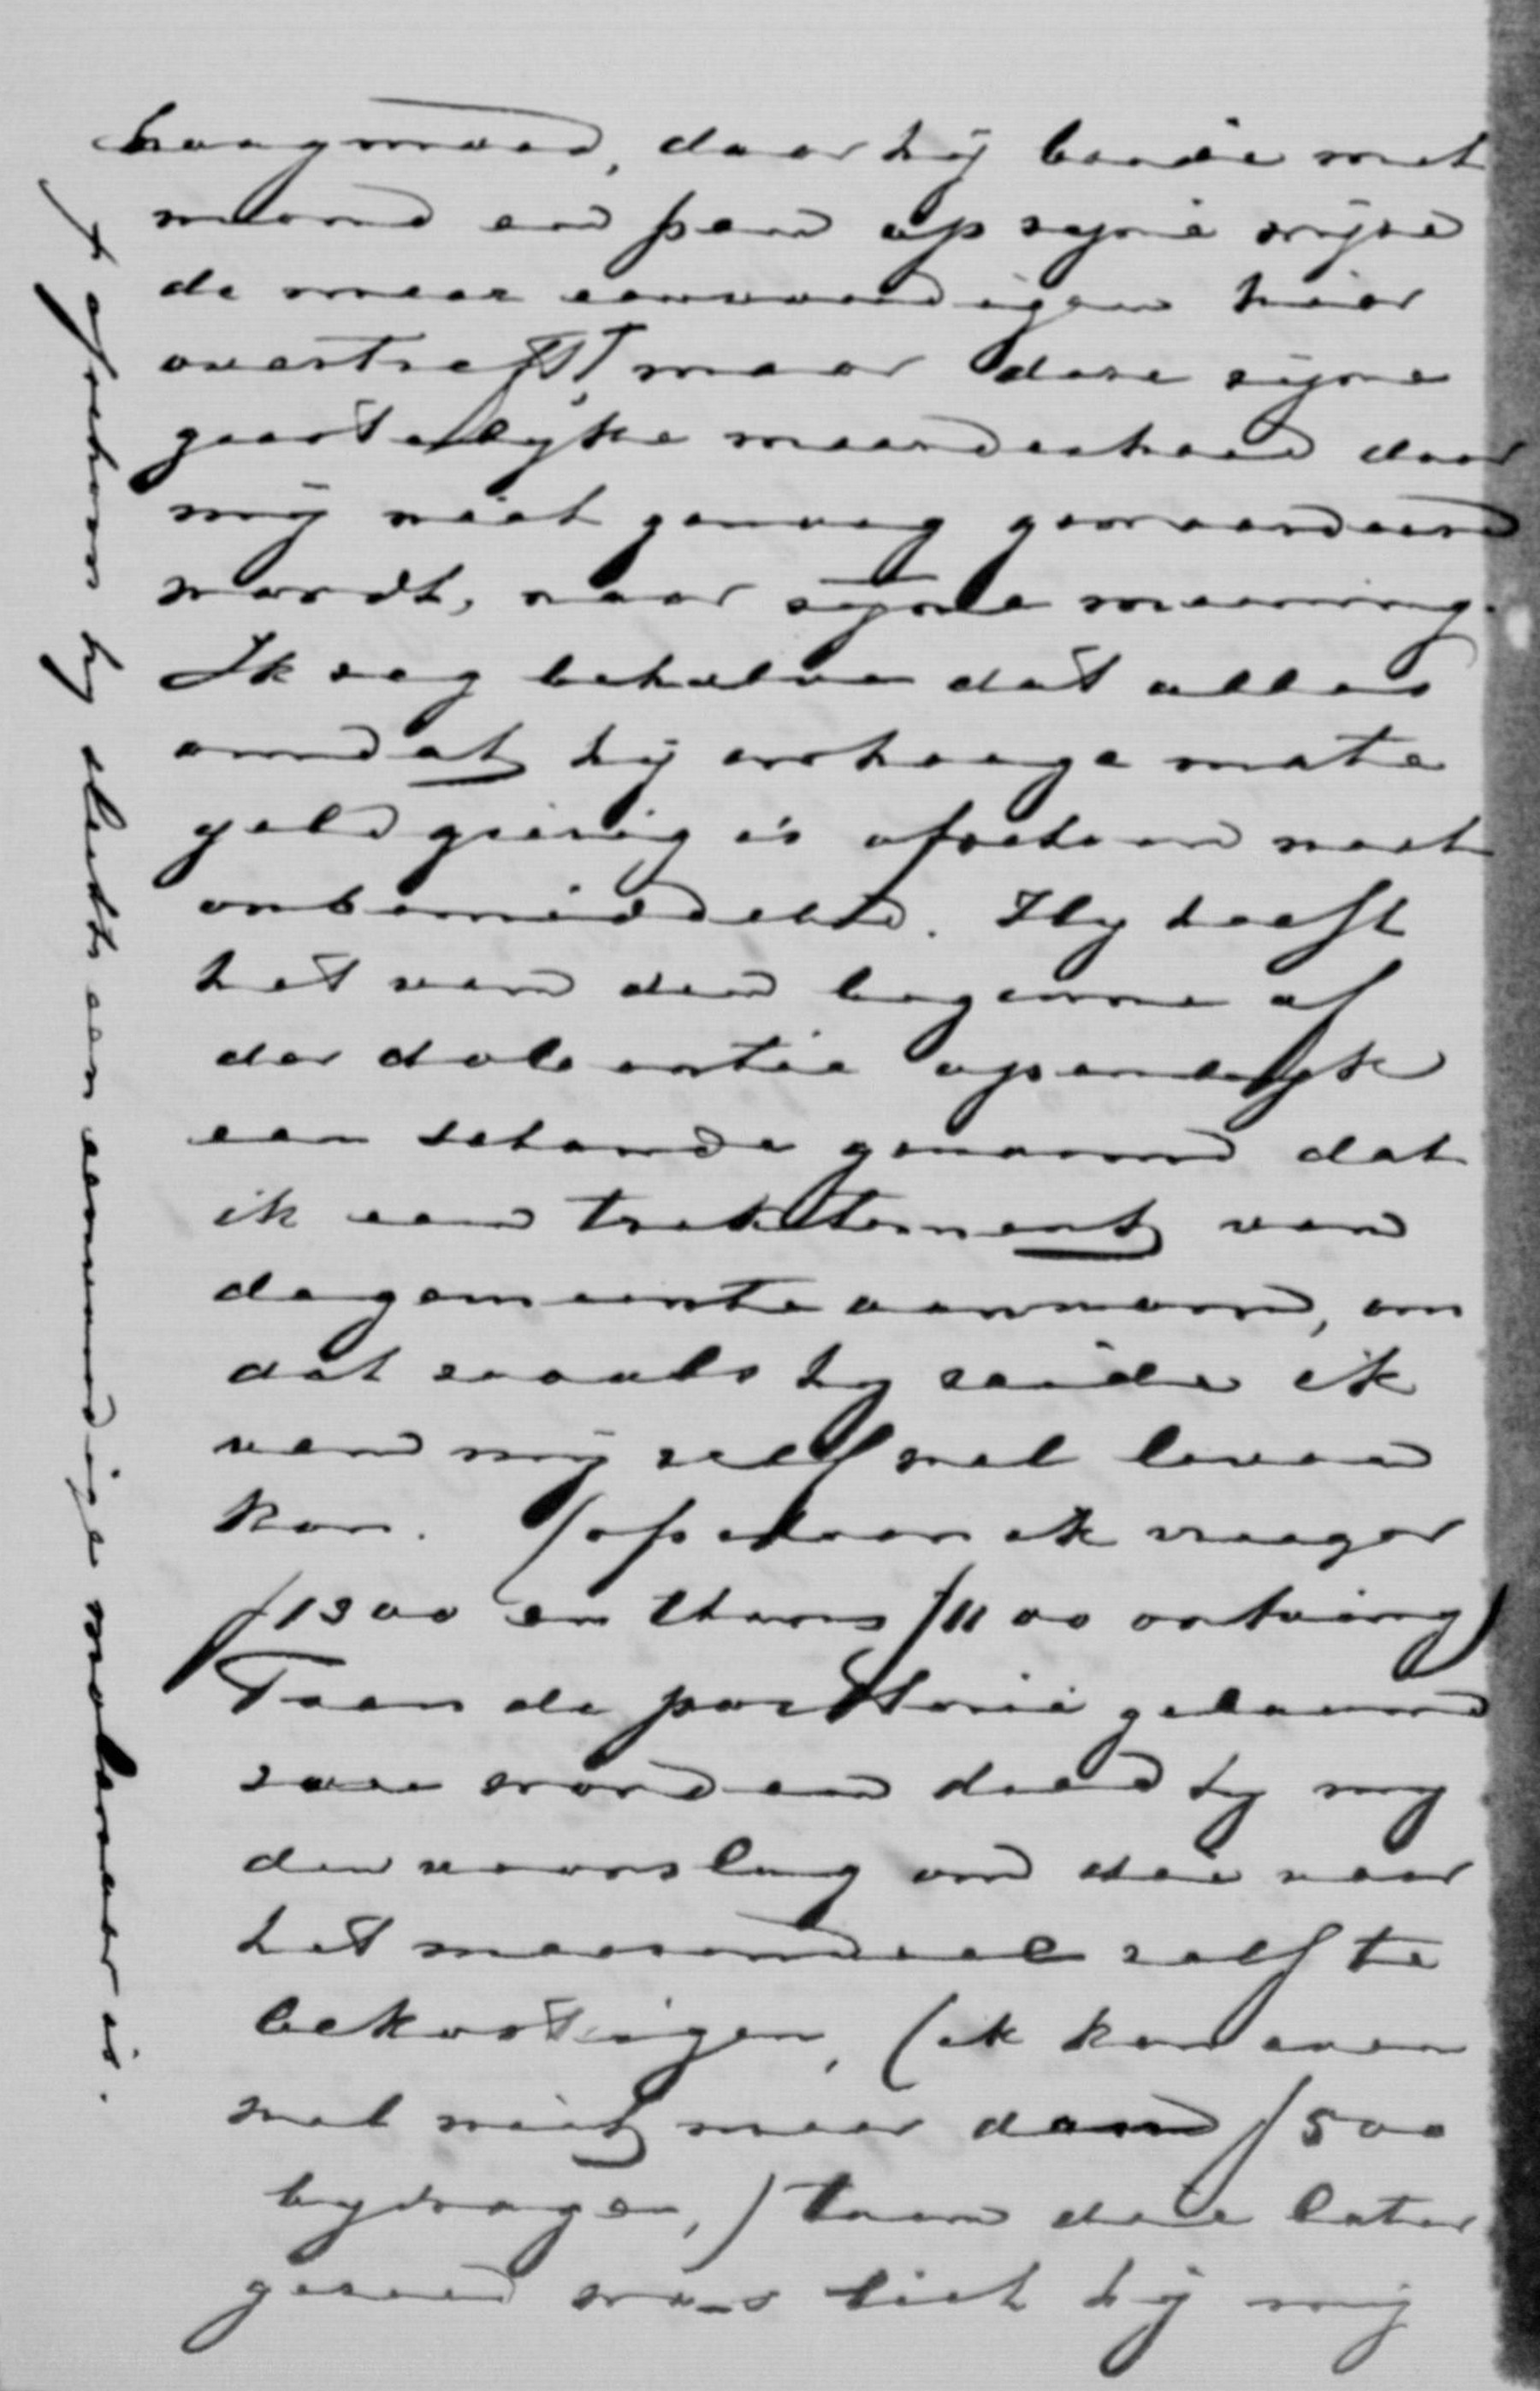 hoogmoed, daar hij beide met
mond en pen op zyne wyze
de meer eenvoudigen hier
overtreft, maar deze zyne
geestelyke meerderheid door
mij niet genoeg gewaardeerd
wordt, naar zyne meening.
Ik zeg behalve dat alles
omdat hij in hooge mate
geldgierig is ofschoon niet
onbemiddeld. Hy heeft
het van den beginne af
der doleantie openlyk
een schande genoemd dat
ik een traktement van
de gemeente aannam, om
dat zooals hy zeide ik
van mij zelf wel leven
kon. (ofschoon ik vroeger
f1300 en thans f1100 ontving)
Toen de pastorie gebouwd
zou worden deed hy my
den voorslag om die voor
het meerendeel zelf te
bekostigen, (ik kon even
wel niet meer dan f500
bydragen,) toen die later
gereed was liet hij mij
+ ofschoon hy slechts een eenvoudige molenaar is.